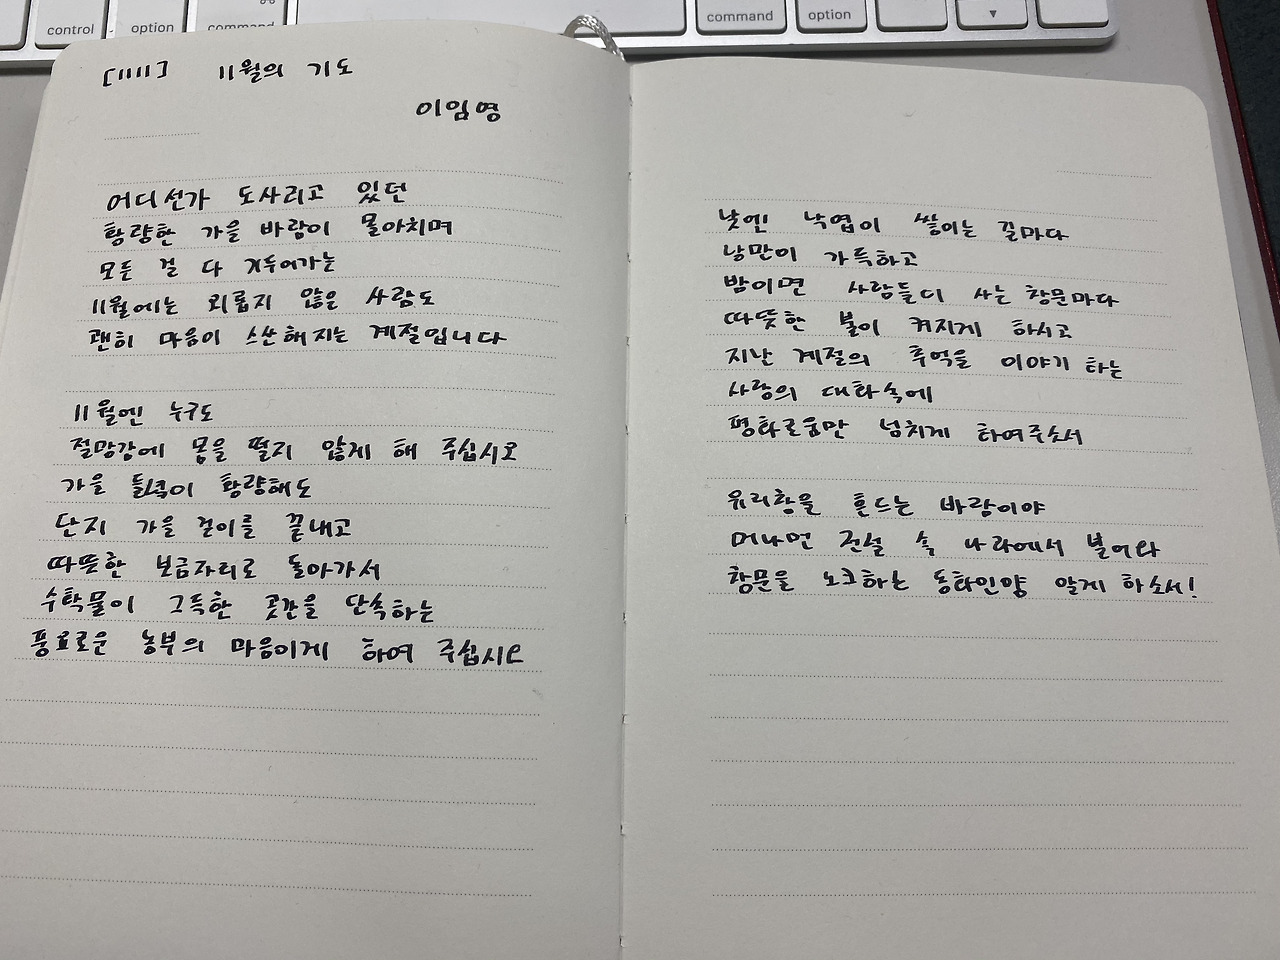 control
option
command
command
option
[1111] 11월의 기도
이임영
어디선가 도사리고 있던
황량한 가을 바람이 몰아치며
모든 걸 다 거두어가는
11월에는 외롭지 않은 사람도
괜히 마음이 스산해지는 계절입니다
11월엔 누구도
절망감에 몸을 떨지 않게 해 주십시오
가을 들녘이 황량해도
단지 가을 걷이를 끝내고
따뜻한 보금자리로 돌아가서
수확물이 그득한 곳간을 단속하는
풍요로운 농부의 마음이게 하여 주십시오
낮엔 낙엽이 쌓이는 길마다
낭만이 가득하고
밤이면 사람들이 사는 창문마다
따뜻한 불이 켜지게 하시고
지난 계절의 추억을 이야기 하는
사랑의 대화속에
평화로움만 넘치게 하여주소서
유리창을 흔드는 바람이야
머나먼 전설 속 나라에서 불어와
창문을 노크하는 동화인양 알게 하소서!